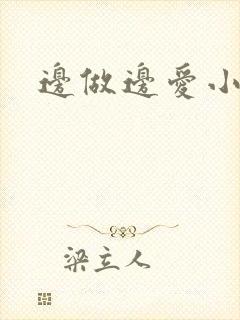 邊做邊愛小
梁立人